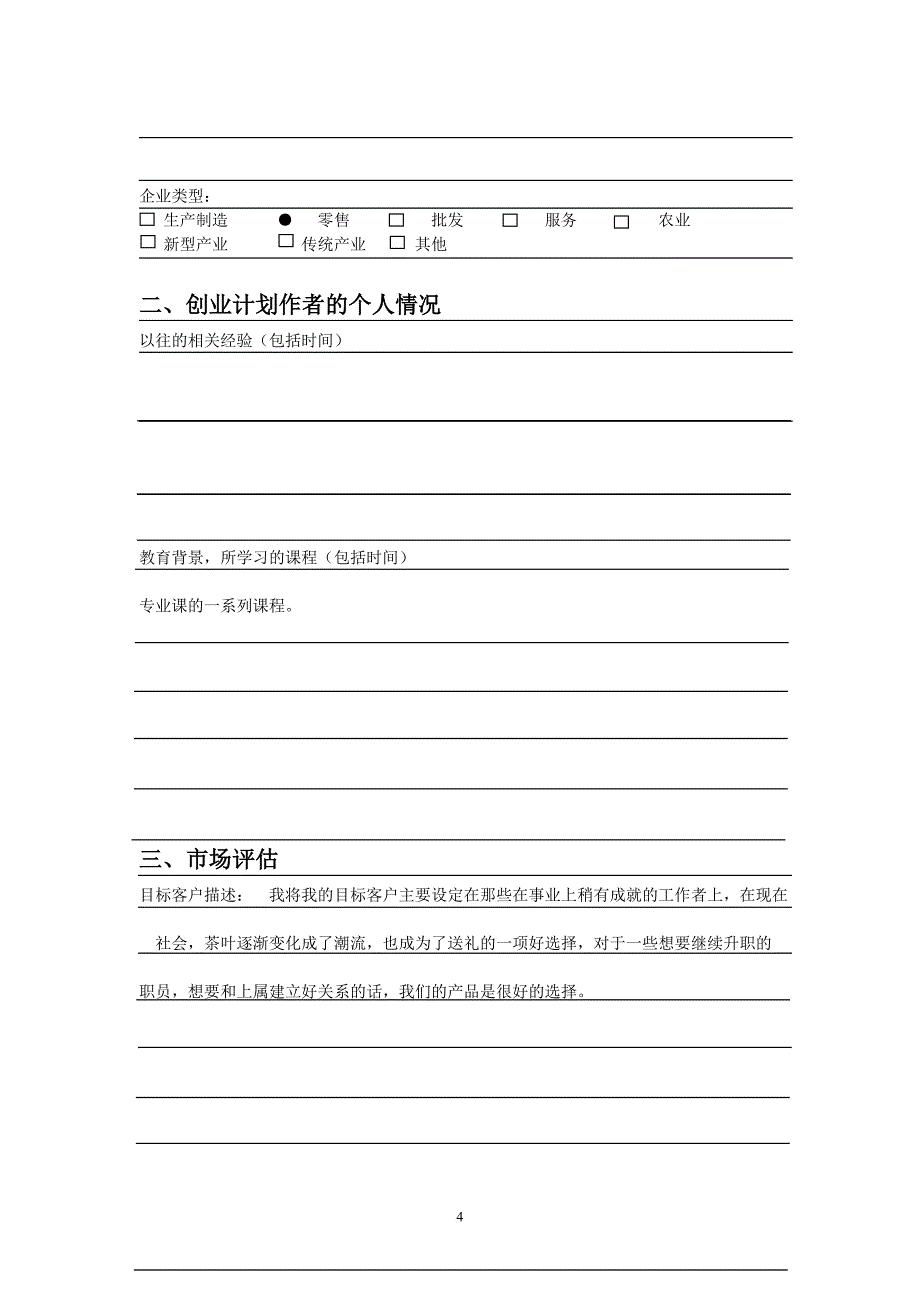 企业类型：
□ 生产制造 ● 零售 □ 批发 □ 服务 □ 农业
□ 新型产业 □ 传统产业 □ 其他
二、创业计划作者的个人情况
以往的相关经验（包括时间）
教育背景，所学习的课程（包括时间）
专业课的一系列课程。
三、市场评估
目标客户描述： 我将我的目标客户主要设定在那些在事业上稍有成就的工作者上，在现在
社会，茶叶逐渐变化成了潮流，也成为了送礼的一项好选择，对于一些想要继续升职的
职员，想要和上属建立好关系的话，我们的产品是很好的选择。
4